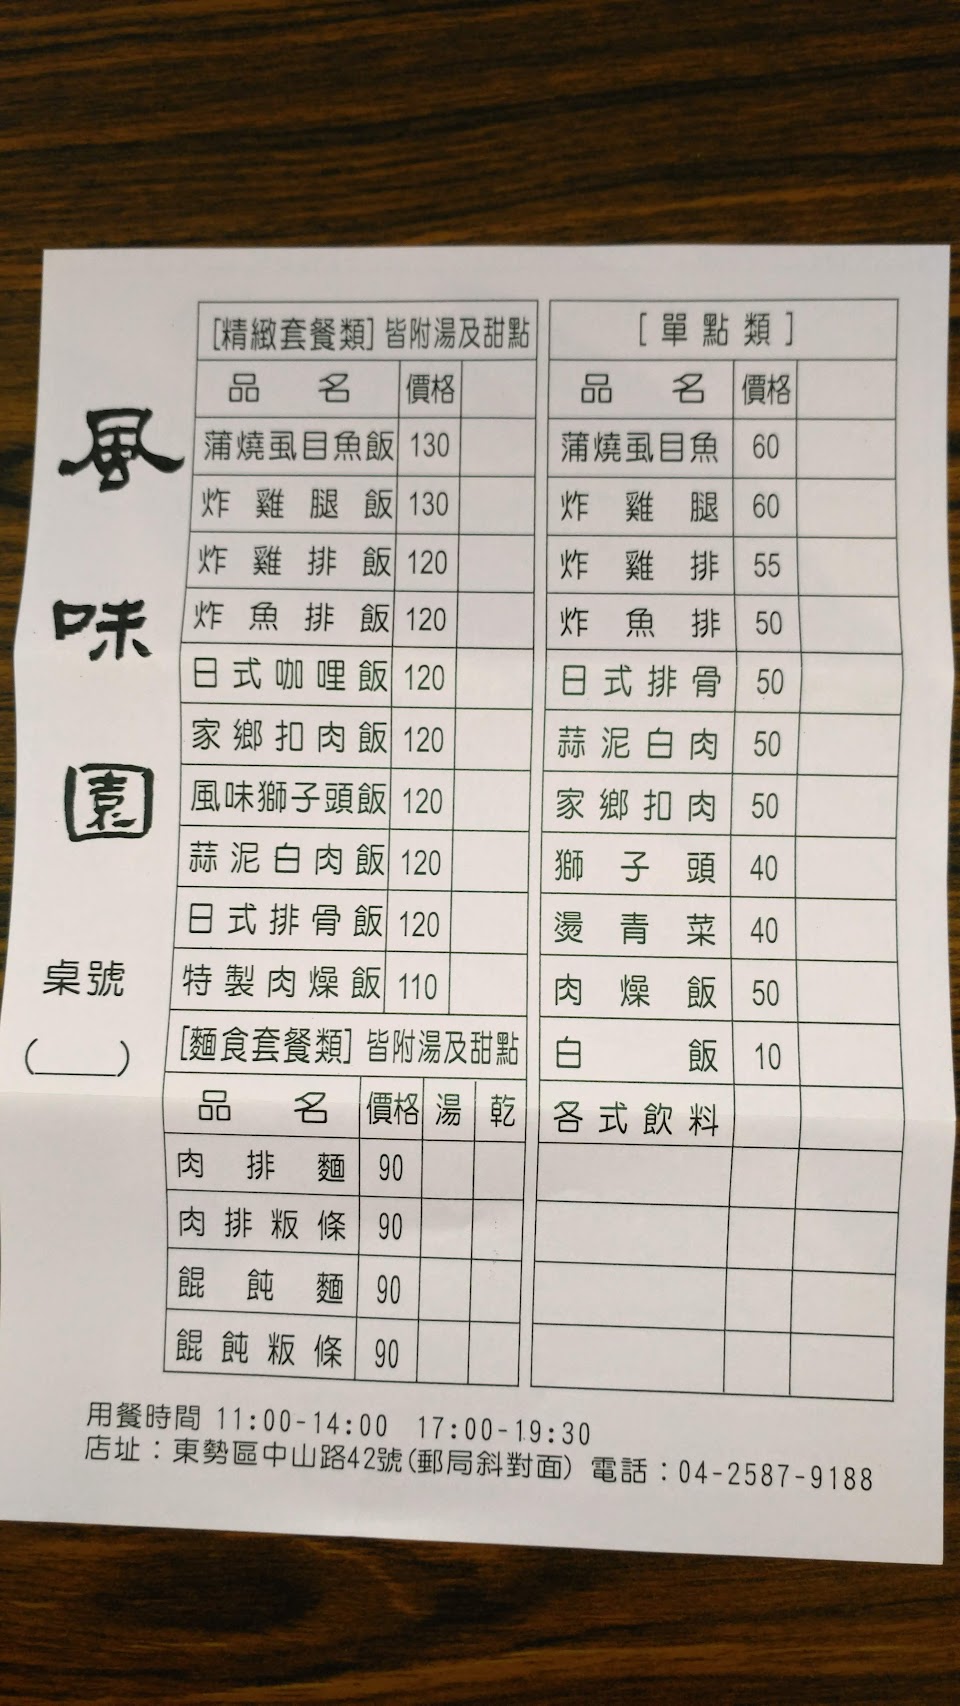 風味園
桌號
(____)
[精緻套餐類] 皆附湯及甜點
品名 價格
蒲燒虱目魚飯 130
炸雞腿飯 130
炸雞排飯 120
炸魚排飯 120
日式咖哩飯 120
家鄉扣肉飯 120
風味獅子頭飯 120
蒜泥白肉飯 120
日式排骨飯 120
特製肉燥飯 110
[麵食套餐類] 皆附湯及甜點
品名 價格 湯 乾
肉排麵 90
肉排粄條 90
餛飩麵 90
餛飩粄條 90
[單點類]
品名 價格
蒲燒虱目魚 60
炸雞腿 60
炸雞排 55
炸魚排 50
日式排骨 50
蒜泥白肉 50
家鄉扣肉 50
獅子頭 40
燙青菜 40
肉燥飯 50
白飯 10
各式飲料
用餐時間 11:00-14:00 17:00-19:30
店址：東勢區中山路42號(郵局斜對面) 電話：04-2587-9188